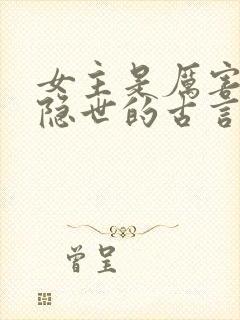 女主是厉害
隐世的古言
曾呈